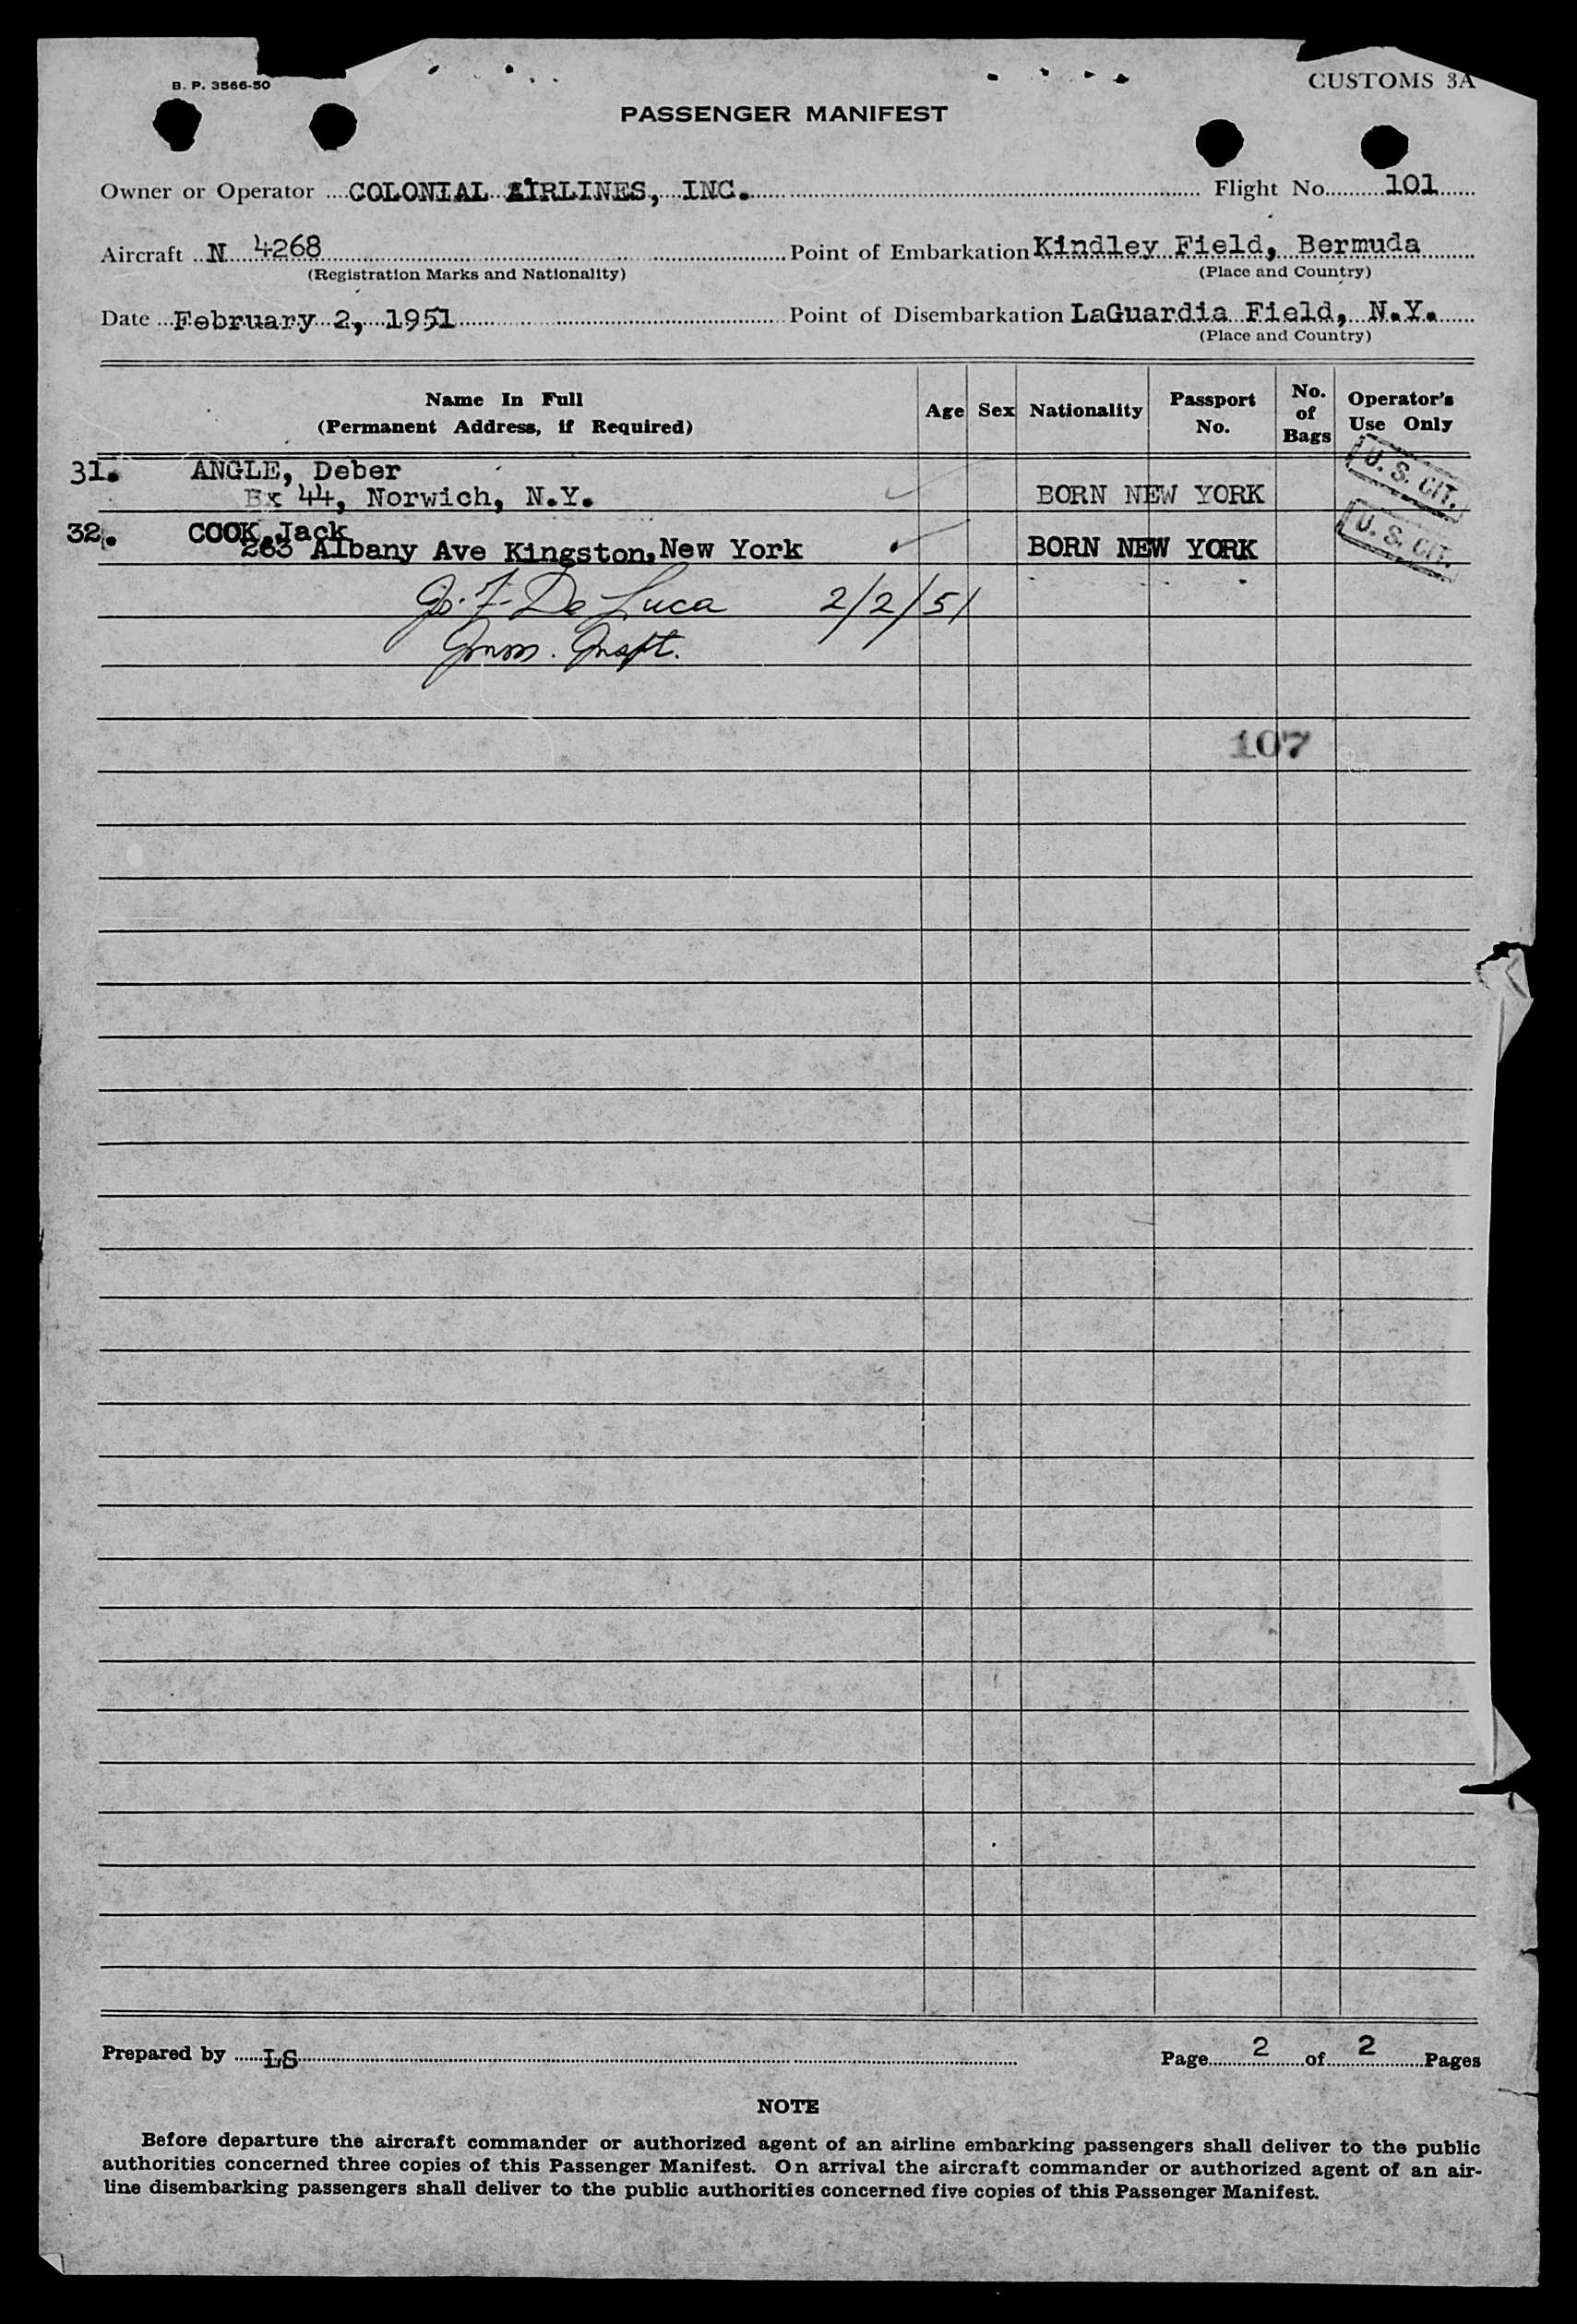 B. P. 3566-50
CUSTOMS 3A
PASSENGER MANIFEST
Owner or Operator COLONIAL AIRLINES, INC. Flight No. 101
Aircraft N 4268 Point of Embarkation Kindley Field, Bermuda
(Registration Marks and Nationality) (Place and Country)
Date February 2, 1951 Point of Disembarkation LaGuardia Field, N.Y.
(Place and Country)
Name In Full
(Permanent Address, if Required)
Age Sex Nationality
Passport
No.
No.
of
Bags
Operator's
Use Only
31. ANGLE, Deber
Bx 44, Norwich, N.Y. BORN NEW YORK U. S. CIT.
32. COOK, Jack
263 Albany Ave Kingston, New York BORN NEW YORK U. S. CIT.
De Luca 2/2/51
Imm. Inspt.
107
Prepared by LS Page 2 of 2 Pages
NOTE
Before departure the aircraft commander or authorized agent of an airline embarking passengers shall deliver to the public
authorities concerned three copies of this Passenger Manifest. On arrival the aircraft commander or authorized agent of an air-
line disembarking passengers shall deliver to the public authorities concerned five copies of this Passenger Manifest.